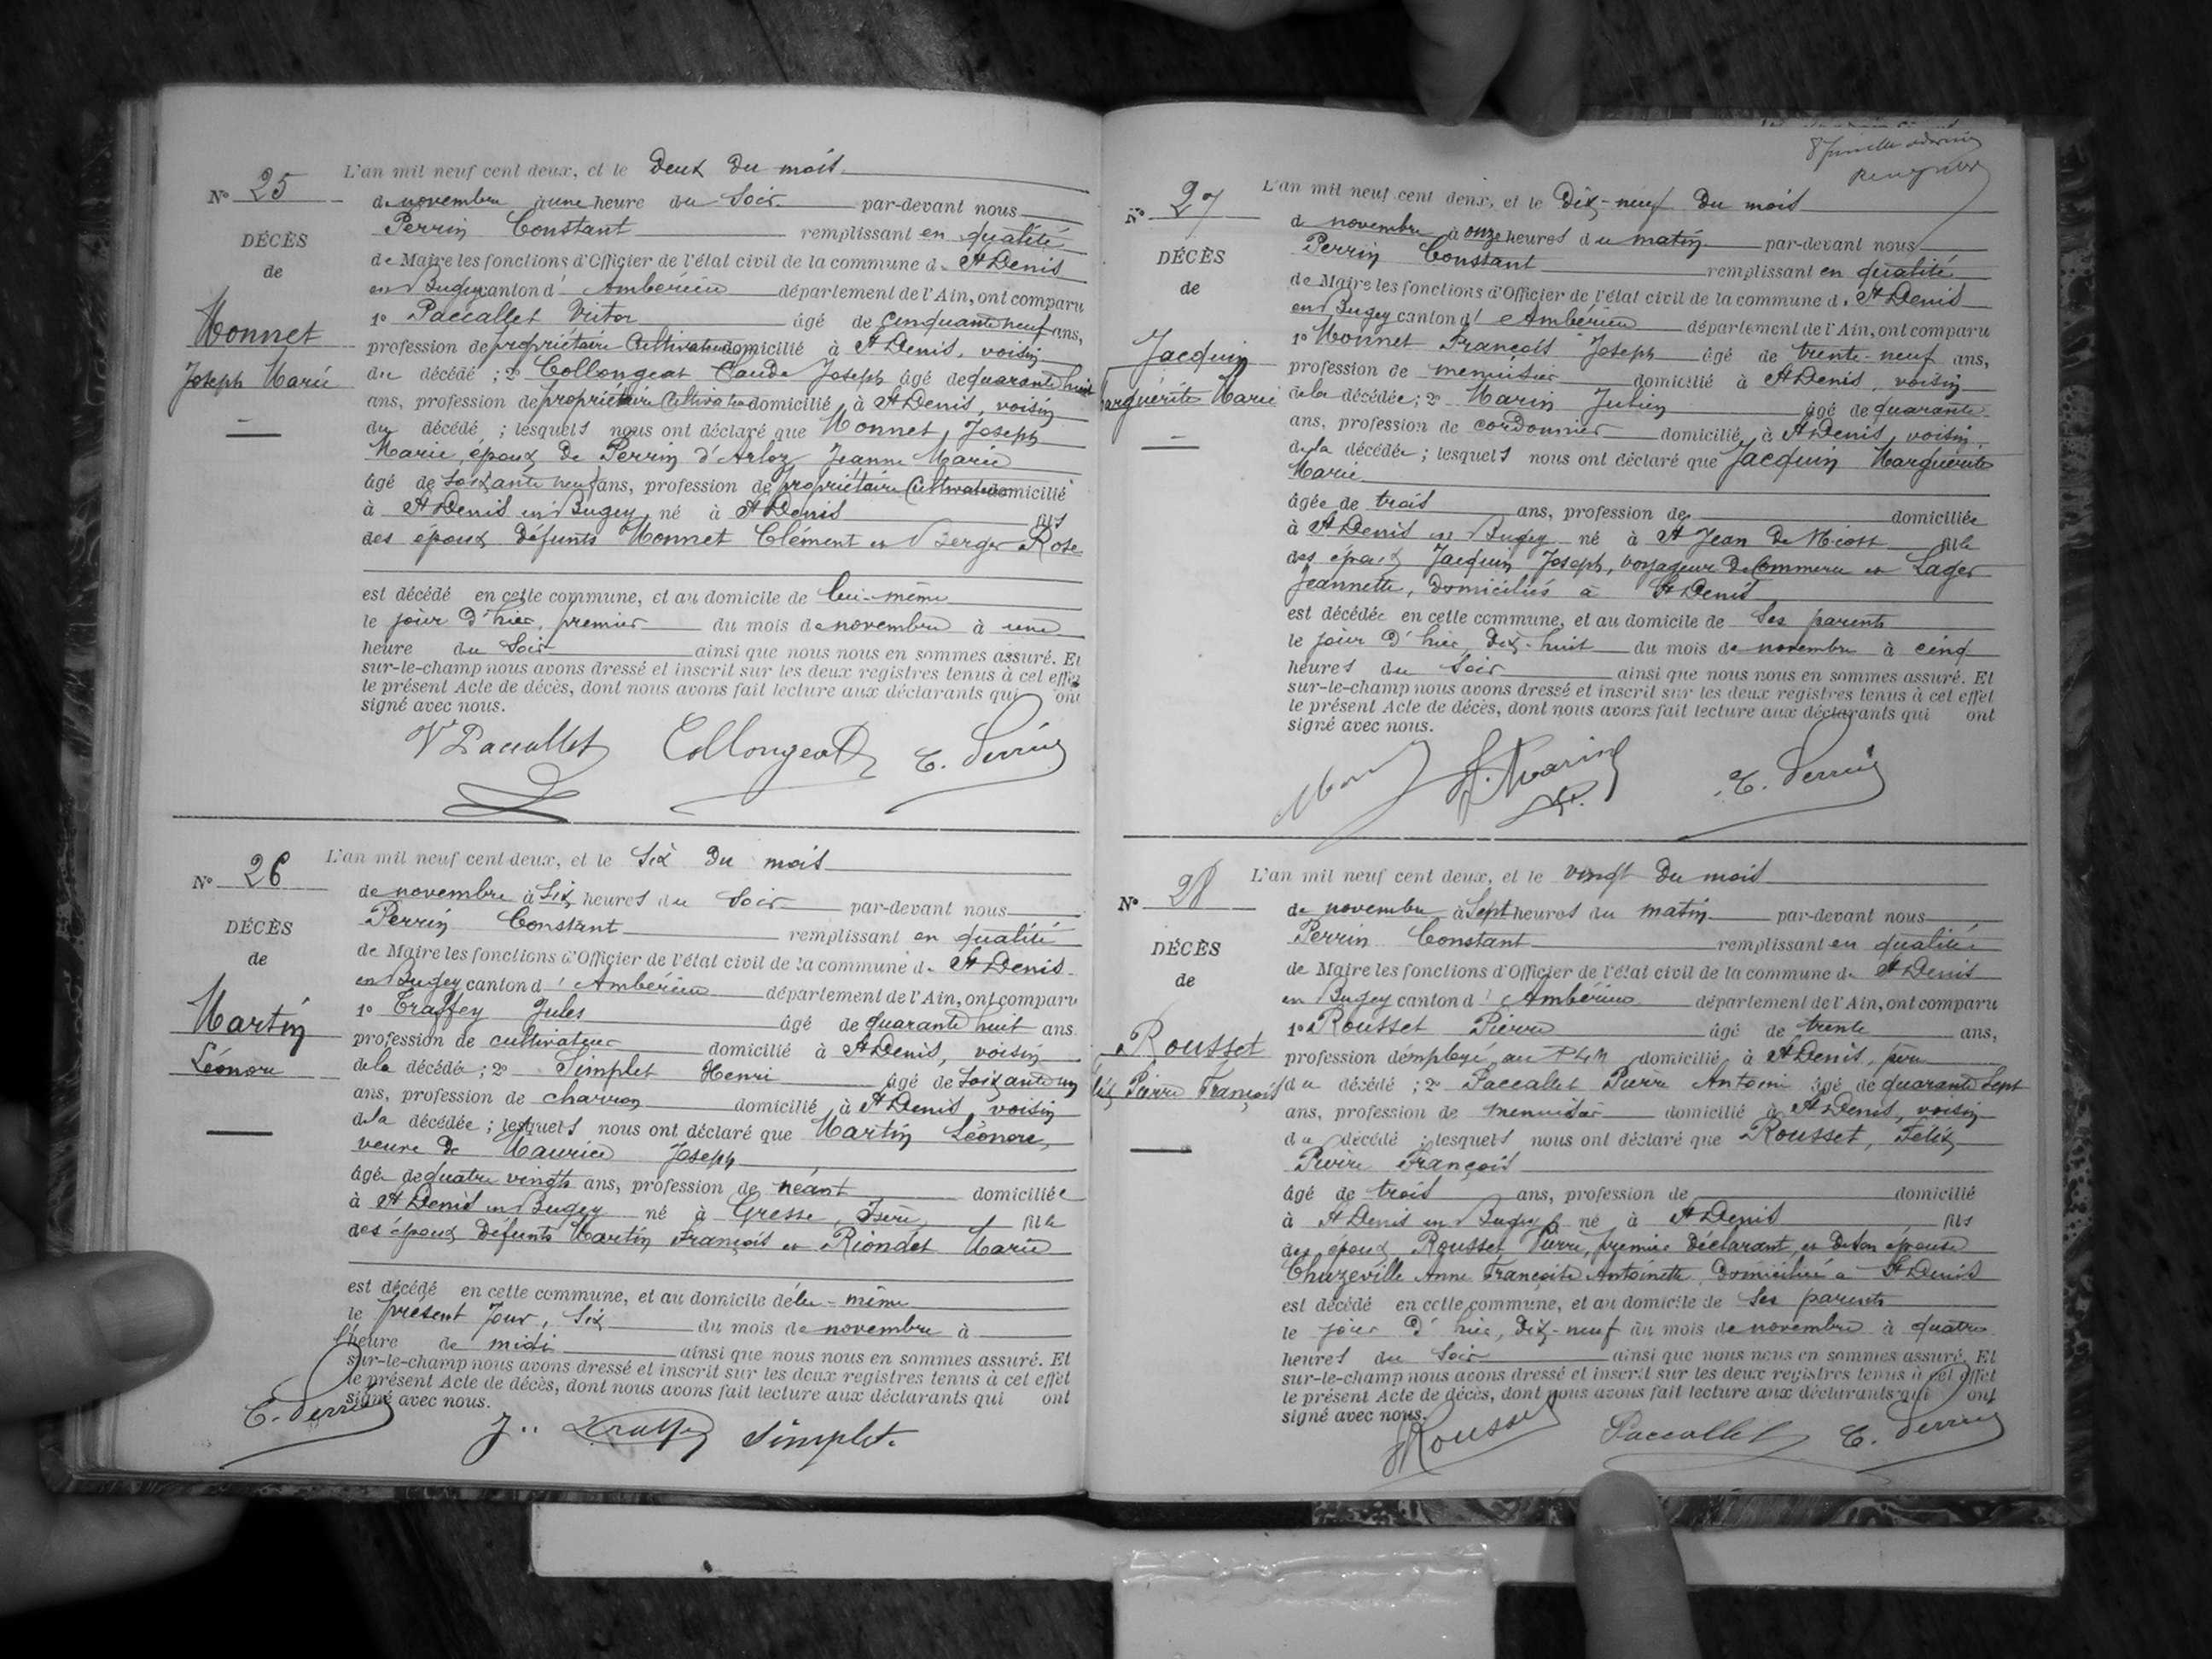 N° 25
DÉCÈS
de
Monnet
Joseph Marie
L'an mil neuf cent deux, et le deux du mois
de novembre à une heure du soir par-devant nous
Perrin Constant remplissant en qualité
de Maire les fonctions d'Officier de l'état civil de la commune d. St Denis
en Bugey canton d' Ambérieu département de l'Ain, ont comparu
1° Paccallet Victor âgé de cinquante neuf ans,
profession de propriétaire Cultivateur domicilié à St Denis, voisin
du décédé ; 2° Collongeat Claude Joseph âgé de quarante huit
ans, profession de propriétaire Cultivateur domicilié à St Denis, voisin
du décédé ; lesquels nous ont déclaré que Monnet, Joseph
Marie, époux de Perrin d'Arloz Jeanne Marie
âgé de soixante neuf ans, profession de propriétaire Cultivateur domicilié
à St Denis en Bugey né à St Denis fils
des époux défunts Monnet Clément et Berger Rose
est décédé en cette commune, et au domicile de lui-même
le jour d'hier, premier du mois de novembre à une
heure du soir ainsi que nous nous en sommes assuré. Et
sur-le-champ nous avons dressé et inscrit sur les deux registres tenus à cet effet
le présent Acte de décès, dont nous avons fait lecture aux déclarants qui ont
signé avec nous.
Vr Paccallet Collongeat C. Perrin
N° 26
DÉCÈS
de
Martin
Léonore
L'an mil neuf cent deux, et le six du mois
de novembre à six heures du soir par-devant nous
Perrin Constant remplissant en qualité
de Maire les fonctions d'Officier de l'état civil de la commune d. St Denis
en Bugey canton d' Ambérieu département de l'Ain, ont comparu
1° Traffey Jules âgé de quarante huit ans
profession de cultivateur domicilié à St Denis, voisin
de la décédée ; 2° Simplet Henri âgé de soixante un
ans, profession de charron domicilié à St Denis, voisin
de la décédée ; lesquels nous ont déclaré que Martin Léonore,
veuve de Maurice Joseph
âgée de quatre vingts ans, profession de néant domiciliée
à St Denis en Bugey né à Gresse, Isère, fille
des époux défunts Martin François et Riondet Marie
est décédé en cette commune, et au domicile d'elle-même
le présent jour, six du mois de novembre à
l'heure de midi ainsi que nous nous en sommes assuré. Et
sur-le-champ nous avons dressé et inscrit sur les deux registres tenus à cet effet
le présent Acte de décès, dont nous avons fait lecture aux déclarants qui ont
signé avec nous.
C. Perrin J. Traffey Simplet.
N° 27
DÉCÈS
de
Jacquin
Marguérite Marie
L'an mil neuf cent deux, et le dix-neuf du mois
d novembre à onze heures du matin par-devant nous
Perrin Constant remplissant en qualité
de Maire les fonctions d'Officier de l'état civil de la commune d. St Denis
en Bugey canton d' Ambérieu département de l'Ain, ont comparu
1° Monnet François Joseph âgé de trente-neuf ans,
profession de menuisier domicilié à St Denis, voisin
de la décédée ; 2° Marin Julien âgé de quarante
ans, profession de cordonnier domicilié à St Denis, voisin
de la décédée ; lesquels nous ont déclaré que Jacquin Marguérite
Marie
âgée de trois ans, profession de domiciliée
à St Denis en Bugey né à St Jean de fille
des époux Jacquin Joseph, voyageur de Commerce et Lager
Jeannette, domiciliés à St Denis
est décédée en cette commune, et au domicile de ses parents
le jour d'hier, dix-huit du mois de novembre à cinq
heures du soir ainsi que nous nous en sommes assuré. Et
sur-le-champ nous avons dressé et inscrit sur les deux registres tenus à cet effet
le présent Acte de décès, dont nous avons fait lecture aux déclarants qui ont
signé avec nous.
J. Marin C. Perrin
N° 28
DÉCÈS
de
Rousset
Pierre François
L'an mil neuf cent deux, et le vingt du mois
de novembre à sept heures du matin par-devant nous
Perrin Constant remplissant en qualité
de Maire les fonctions d'Officier de l'état civil de la commune d. St Denis
en Bugey canton d' Ambérieu département de l'Ain, ont comparu
1° Rousset Pierre âgé de trente ans,
profession d'employé au PLM domicilié à St Denis, père
du décédé ; 2° Paccallet Pierre Antoine âgé de quarante sept
ans, profession de menuisier domicilié à St Denis, voisin
du décédé ; lesquels nous ont déclaré que Rousset, Félix
Pierre François
âgé de trois ans, profession de domicilié
à St Denis en Bugey né à St Denis fils
des époux Rousset Pierre, premier déclarant, et de son épouse
Chuzeville Anne Françoise Antoinette, domiciliés à St Denis
est décédé en cette commune, et au domicile de ses parents
le jour d'hier, dix-neuf du mois de novembre à quatre
heures du soir ainsi que nous nous en sommes assuré. Et
sur-le-champ nous avons dressé et inscrit sur les deux registres tenus à cet effet
le présent Acte de décès, dont nous avons fait lecture aux déclarants qui ont
signé avec nous.
Rousset Paccallet C. Perrin